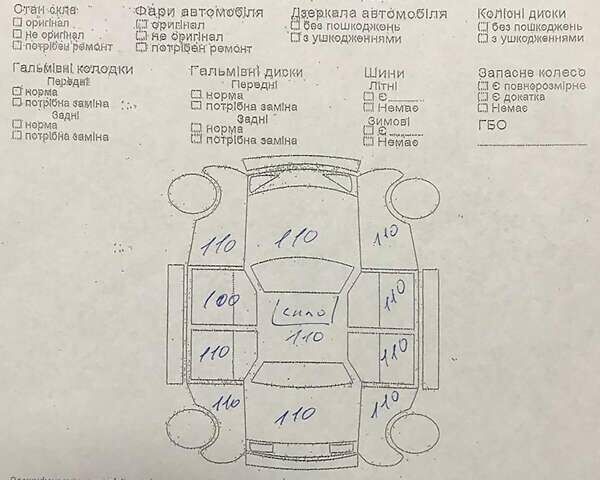 Стан скла
оригінал
не оригінал
потрібен ремонт
Фари автомобіля
оригінал
не оригінал
потрібен ремонт
Дзеркала автомобіля
без пошкоджень
з ушкодженнями
Колісні диски
без пошкоджень
з ушкодженнями
Гальмівні колодки
Передні
норма
потрібна заміна
Задні
норма
потрібна заміна
Гальмівні диски
Передні
норма
потрібна заміна
Задні
норма
потрібна заміна
Шини
Літні
Є
Немає
Зимові
Є
Немає
Запасне колесо
Є повнорозмірне
Є докатка
Немає
ГБО
110 110 110
100 скло 110
110
110 110
110 110 110